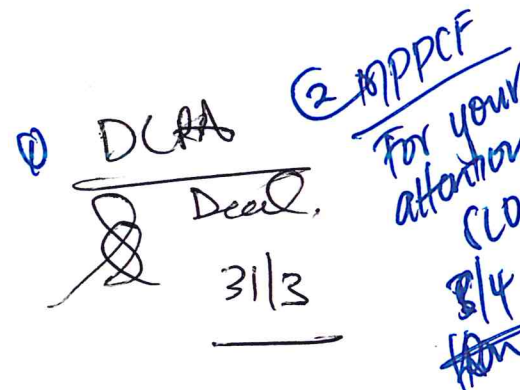 ①
DCRA
Deal.
31/3
② MPPCF
For your
attention
CLO
3/4